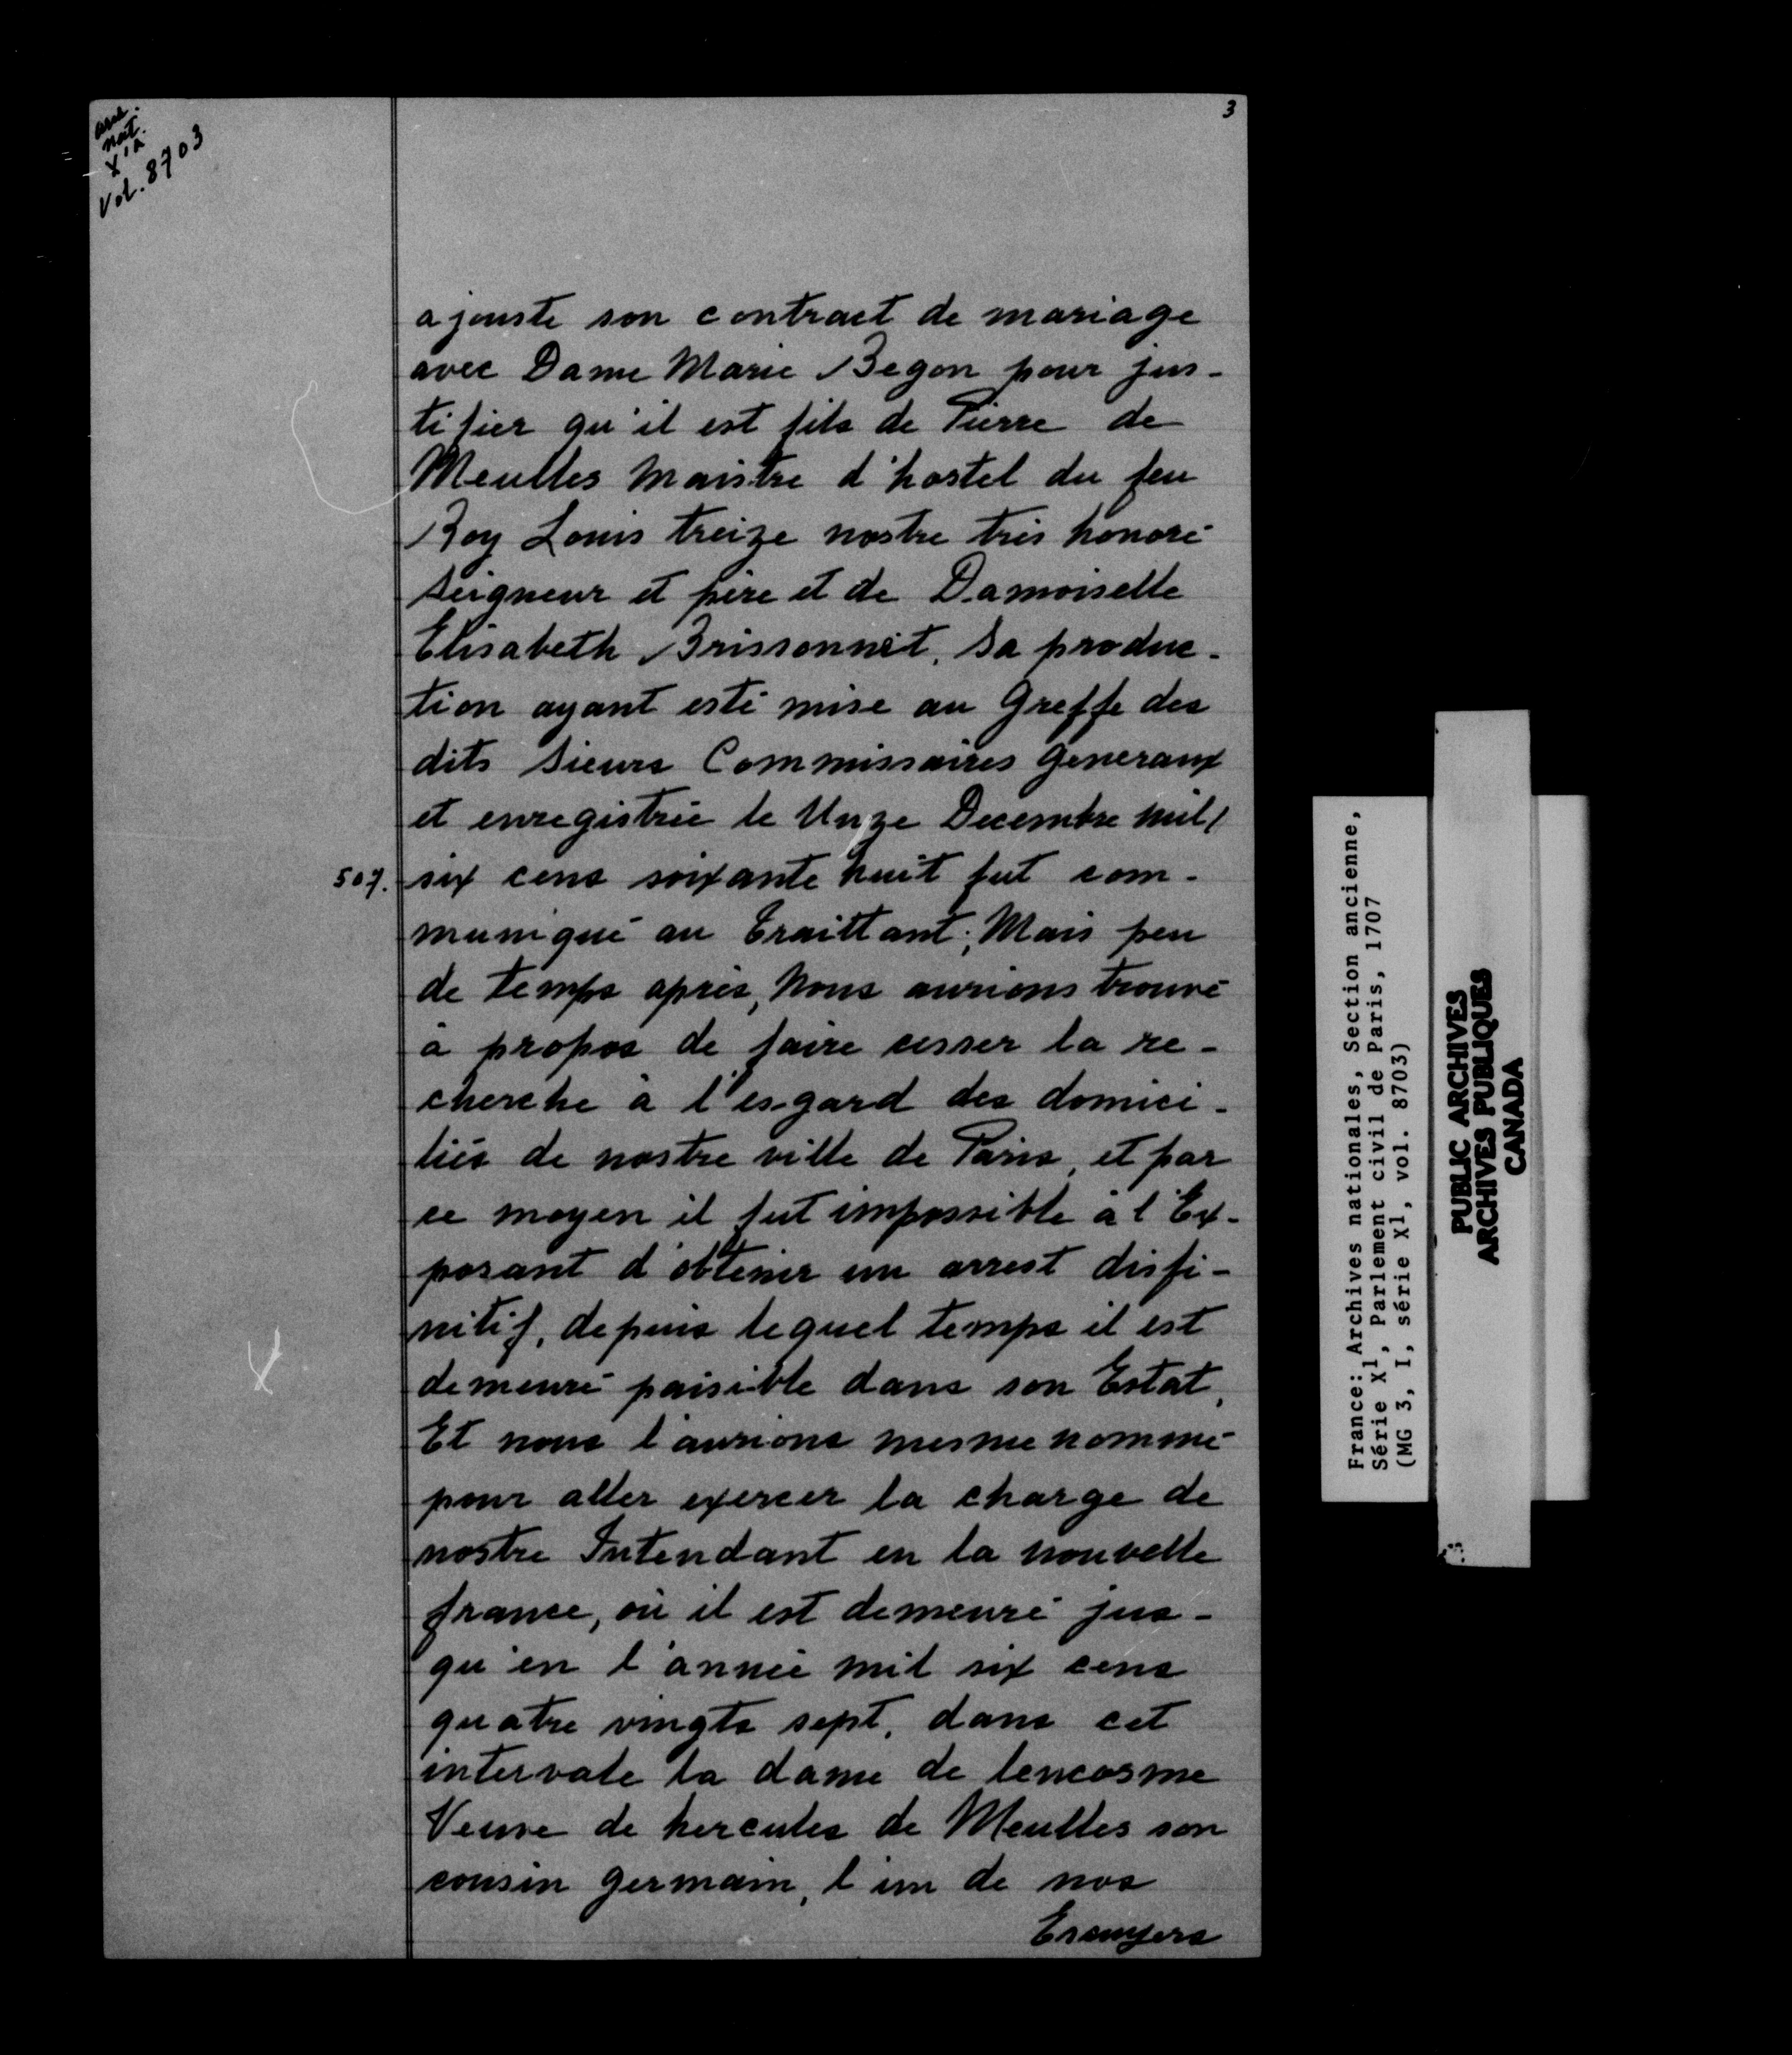 arch.
nat.
X1a
Vol. 8703
3
ajouste son contract de mariage
avec Dame Marie Begon pour jus-
tifier qu'il est fils de Pierre de
Meulles Maistre d'hostel du feu
Roy Louis treize nostre très honoré
seigneur et père et de Damoiselle
Elisabeth Brissonnet, sa produc-
tion ayant esté mise au Greffe des
dits sieurs Commissaires Generaux
et enregistrée le Unze Decembre mil
507. six cens soixante huit fut com-
muniqué au Traittant; Mais peu
de temps après, Nous aurions trouvé
à propos de faire cesser la re-
cherche à l'esgard des domici-
liés de nostre ville de Paris, et par
ce moyen il fut impossible à l'Ex-
posant d'obtenir un arrest disfi-
nitif, depuis lequel temps il est
demeuré paisible dans son Estat,
Et nous l'aurions mesme nommé
pour aller exercer la charge de
nostre Intendant en la nouvelle
france, où il est demeuré jus-
qu'en l'année mil six cens
quatre vingts sept, dans cet
intervale la dame de lencosme
Veuve de hercules de Meulles son
cousin germain, l'un de nos
Escuyers
France: Archives nationales, Section ancienne,
Série X1, Parlement civil de Paris, 1707
(MG 3, I, série X1, vol. 8703)
PUBLIC ARCHIVES
ARCHIVES PUBLIQUES
CANADA